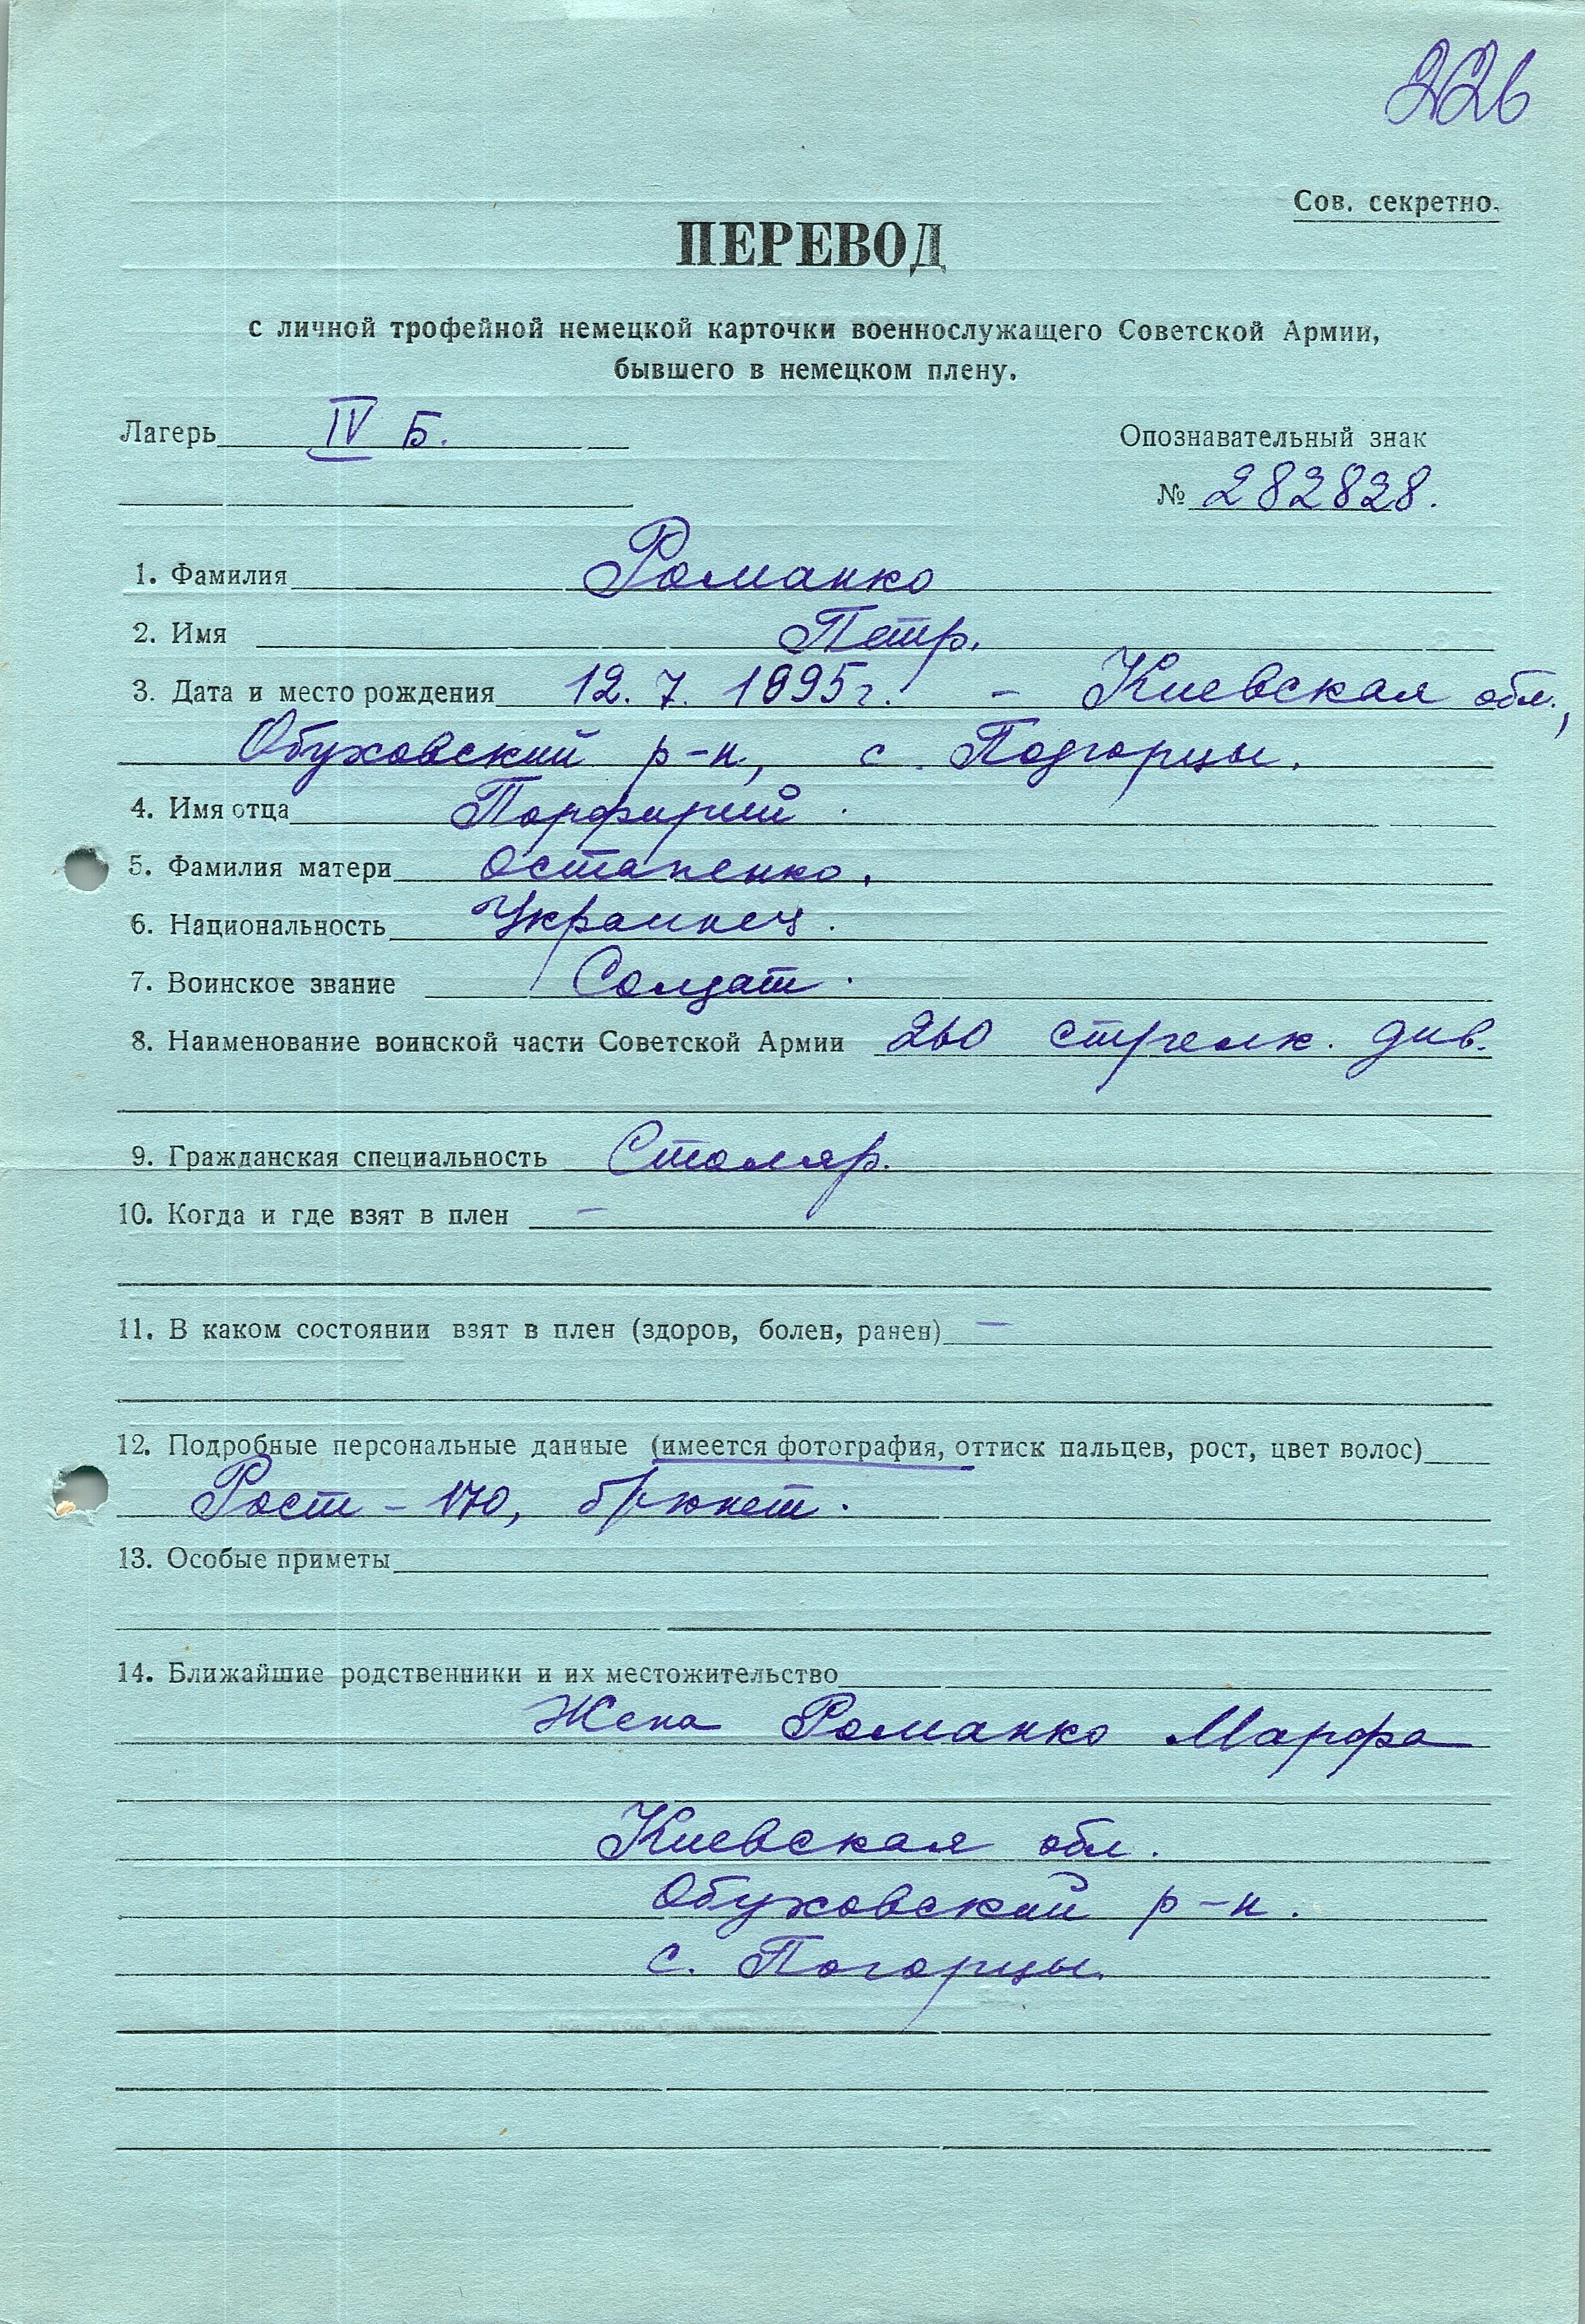 226
Сов. секретно.
ПЕРЕВОД
с личной трофейной немецкой карточки военнослужащего Советской Армии,
бывшего в немецком плену.
Лагерь IV Б.
Опознавательный знак
№ 282828.
1. Фамилия Романко
2. Имя Петр.
3. Дата и место рождения 12. 7. 1895 г. - Киевская обл.,
Обуховский р-н, с. Подгорцы.
4. Имя отца Порфирий.
5. Фамилия матери Остапенко.
6. Национальность Украинец.
7. Воинское звание Солдат.
8. Наименование воинской части Советской Армии 260 стрелк. див.
9. Гражданская специальность Столяр.
10. Когда и где взят в плен —
11. В каком состоянии взят в плен (здоров, болен, ранен) —
12. Подробные персональные данные (имеется фотография, оттиск пальцев, рост, цвет волос)
Рост - 170, брюнет.
13. Особые приметы
14. Ближайшие родственники и их местожительство
Жена Романко Марфа
Киевская обл.
Обуховский р-н.
с. Погорцы.